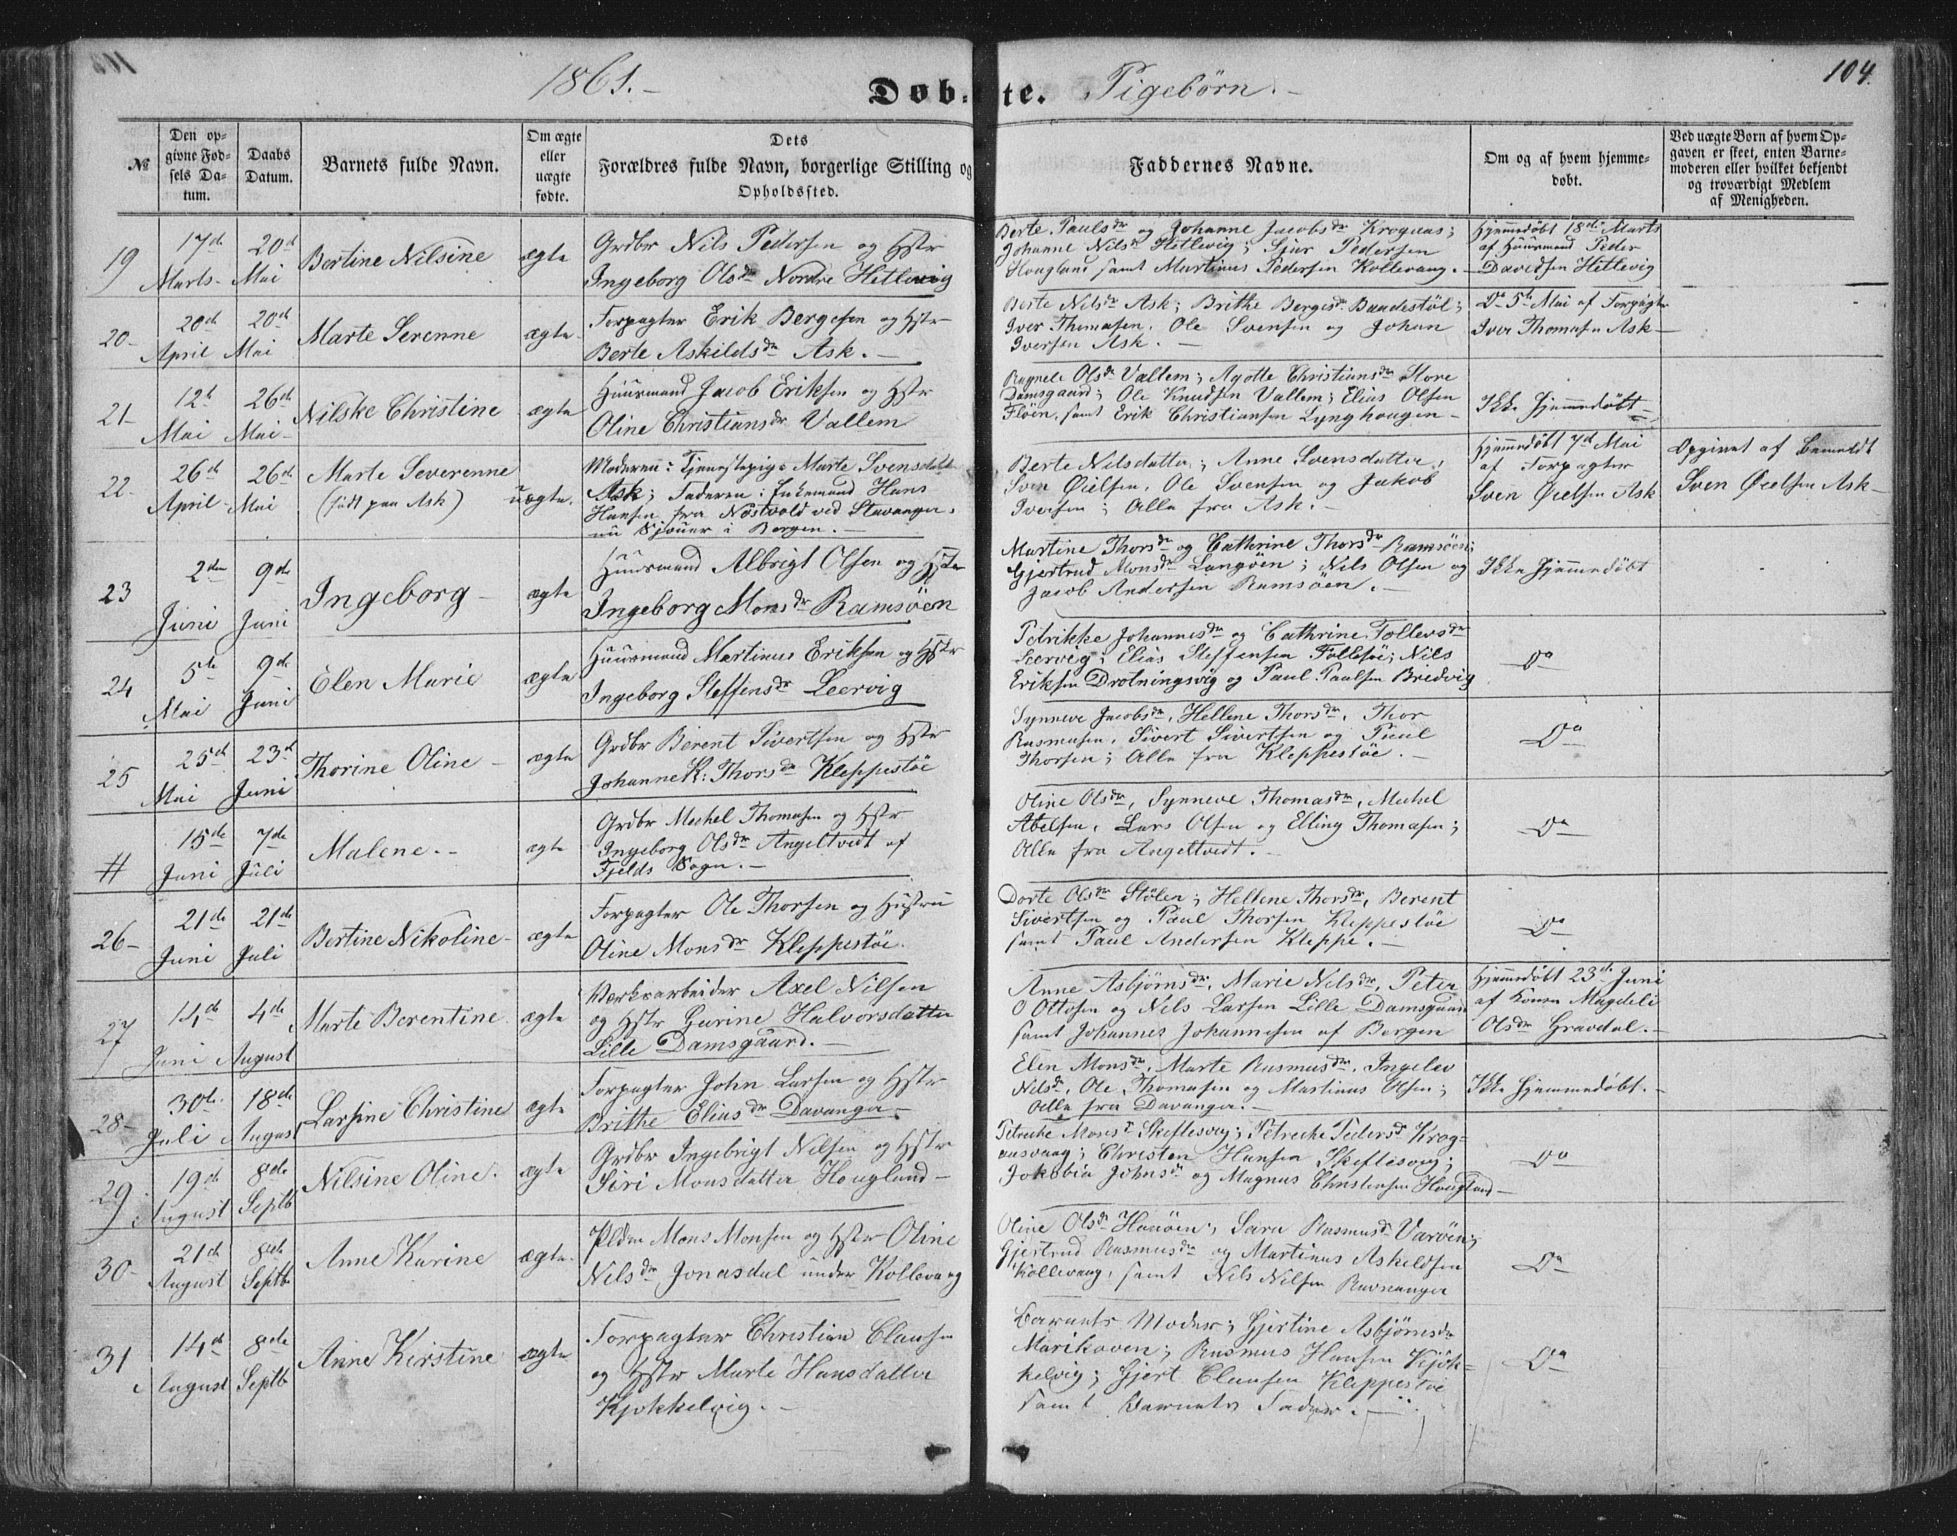 1861.-
Døbte. Pigebørn.-
104.
№
Den opgivne Fødsels Datum.
Daabs Datum.
Barnets fulde Navn.
Om ægte eller uægte fødte.
Dets Forældres fulde Navn, borgerlige Stilling og Opholdssted.
Faddernes Navne.
Om og af hvem hjemmedøbt.
Ved uægte Børn af hvem Opgaven er skeet, enten Barnemoderen eller hvilket bekjendt og troværdigt Medlem af Menigheden.
19
17de Marts-
20de Mai
Bertine Nilsine
ægte
Grdbr Nils Pedersen og Hstr
Ingeborg Olsdr Nordre Hetlevig
Berte Paulsdr og Johanne Jacobsdr Krognæs;
Johanne Nilsdr Hetlevig; Sjur Pedersen
Hougland samt Martinus Pedersen Kollevaag.-
Hjemmedøbt 18de Marts
af Huusmand Peder
Davidsen Hetlevig
20-
20de April
20de Mai
Marte Serenne
ægte
Forpagter Erik Bergesen og Hstr
Berte Askildsdr Ask.-
Berte Nilsdr Ask; Brithe Bergesdr Baudestøl;
Iver Thomasen, Ole Svensen og Johan
Iversen Ask.-
Do 5te Mai af Forpagter
Iver Thomasen Ask-
21-
12te Mai
26de Mai-
Nilske Christine
ægte
Huusmand Jacob Eriksen og Hstr
Oline Christiansdr Vallem
Ragnele Olsdr Vallem; Agotte Christiansdr Store
Damsgaard; Ole Knudsen Vallem; Elias Olsen
Fløen, samt Erik Christiansen Lynghougen-
Ikke Hjemmedøbt-
22-
26de April-
26de Mai
Marte Severenne
(født paa Ask)
uægte.
Moderen: Tjenestepige Marte Svensdatter
Ask; Faderen: Enkemand Hans
Hansen fra Nøstvold ved Stavanger,
nu Sjouer i Bergen.-
Berte Nilsdatter; Anne Svensdatter,
Sven Øielsen, Ole Svensen og Jakob
Iversen; Alle fra Ask.-
Hjemmedøbt 7de Mai
af Forpagter
Sven Øielsen Ask
Opgivet af bemeldt
Sven Øielsen Ask-
23
2den Juni
9de Juni
Ingeborg-
ægte
Huusmand Albrigt Olsen og Hstr
Ingeborg Monsdr Ramsøen
Martine Thorsdr og Cathrine Thorsdr Ramsøen;
Gjertrud Monsdr Langøen; Nils Olsen og
Jacob Andersen Ramsøen.-
Ikke Hjemmedøbt
24
5te Mai
9de Juni
Elen Marie
ægte
Huusmand Martinus Eriksen og Hstr
Ingeborg Steffensdr Leervig
Petrikke Johannesdr og Cathrine Tollevsdr
Leervig; Elias Steffensen Follesøe; Nils
Eriksen Drotningsvig og Paul Paulsen Bredvig
Do
25
25de Mai
23de Juni
Thorine Oline-
ægte
Grdbr Berent Sivertsen og Hstr
Johanne K: Thorsdr Kleppestøe
Synneve Jacobsdr, Hellene Thorsdr, Thor
Rasmusen, Sivert Sivertsen og Paul
Thorsen; Alle fra Kleppestøe.-
Do
#
15de Juni
7de Juli
Malene.-
ægte
Grdbr Mechel Thomasen og Hstr
Ingeborg Olsdr Angeltvedt af
Fjelds Sogn.-
Oline Olsdr, Synneve Thomasdr, Mechel
Abelsen, Lars Olsen og Elling Thomasen;
Alle fra Angeltvedt.-
Do
26-
21de Juni
21de Juli
Bertine Nikoline-
ægte
Forpagter Ole Thorsen og Hustru
Oline Monsdr Kleppestøe.
Dorte Olsdr Stølen; Hellene Thorsdr, Berent
Sivertsen og Paul Thorsen Kleppestøe
samt Paul Andersen Kleppe.-
Do
27
14de Juni
4de August
Marte Berentine
ægte
Værksarbeider Axel Nilsen
og Hstr Gurine Halvorsdatter
Lille Damsgaard.-
Anne Asbjørnsdr, Marie Nilsdr, Peter
O Ottosen og Nils Larsen Lille Damsgaard
samt Johannes Johannesen af Bergen
Hjemmedøbt 23de Juni
af Konen Magdeli
Olsdr Gravdal.-
28-
30te Juli
18de August
Larsine Christine
ægte
Forpagter John Larsen og Hstr
Brithe Eliasdr Davanger-
Elen Monsdr, Marte Rasmusdr, Ingelev
Nilsdr, Ole Thomasen og Martinus Olsen;
Alle fra Davanger.-
Ikke Hjemmedøbt.-
29
19de August
8de Septb
Nilsine Oline.
ægte
Grdbr Ingebrigt Nilsen og Hstr
Siri Monsdatter Hougland-
Petreche Monsdr Skeflesvig; Petreche Pedersdr Krog-
aasvaag; Christen Hansen Skeflesvig;
Jokobia Johnsdr og Magnus Christensen Hougland-
Do
30-
21de August
8de Septb
Anne Karine
ægte
Pldm Mons Monsen og Hstr Oline
Nilsdr Jonasdal under Kollevaag
Oline Olsdr Hanøen, Sara Rasmusdr Varøen;
Gjertrud Rasmusdr og Martinus Askeldsen
Kollevaag, samt Nils Nilsen Ravnanger
Do
31
14de August
8de Septb
Anne Kirstine
ægte
Forpagter Christian Clausen
og Hstr Marte Hansdatter
Kjøkkelvig.-
Barnets Moder; Gjertine Asbjørnsdr
Marikoven; Rasmus Hansen Kjøk-
kelvig; Gjert Clausen Kleppestøe
samt Barnets Fader.-
Do